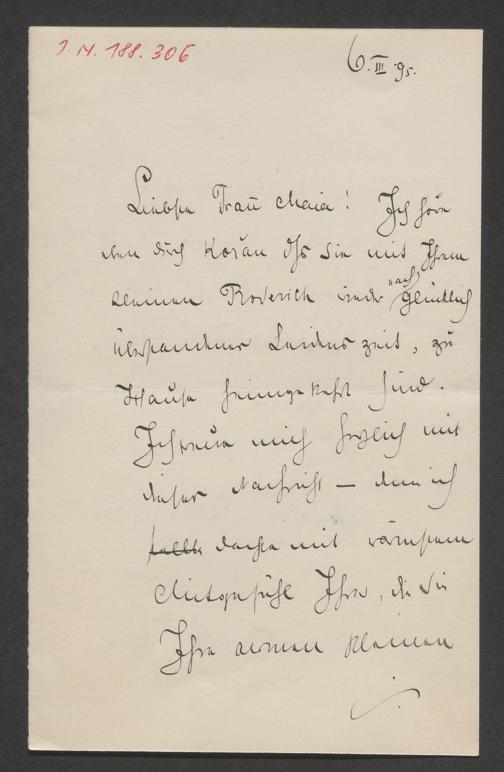 J. N. 188.306
6.III.95.
Liebste Frau Maia! Ich höre
eben durch Korčan daß Sie mit Ihrem
kleinen Roderich wieder "nach glücklich
überstandener Leidenszeit, zu
Hause heimgekehrt sind.
Ich freue mich herzlich mit
dieser Nachricht – denn ich
dachte mit wärmstem
Mitgefühl Ihrer, die Sie
Ihren armen kleinen